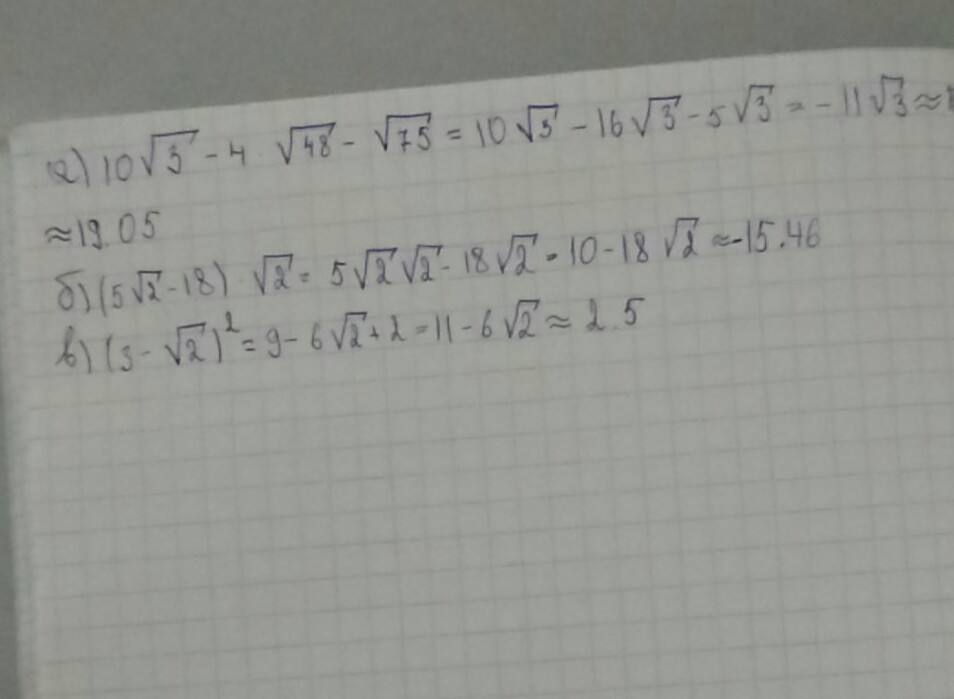 а) 10√3 - 4 · √48 - √75 = 10√3 - 16√3 - 5√3 = - 11√3 ≈
≈ 19.05
б) (5√2 - 18) √2 = 5√2√2 - 18√2 = 10 - 18√2 ≈ -15.46
в) (3 - √2)² = 9 - 6√2 + 2 = 11 - 6√2 ≈ 2.5